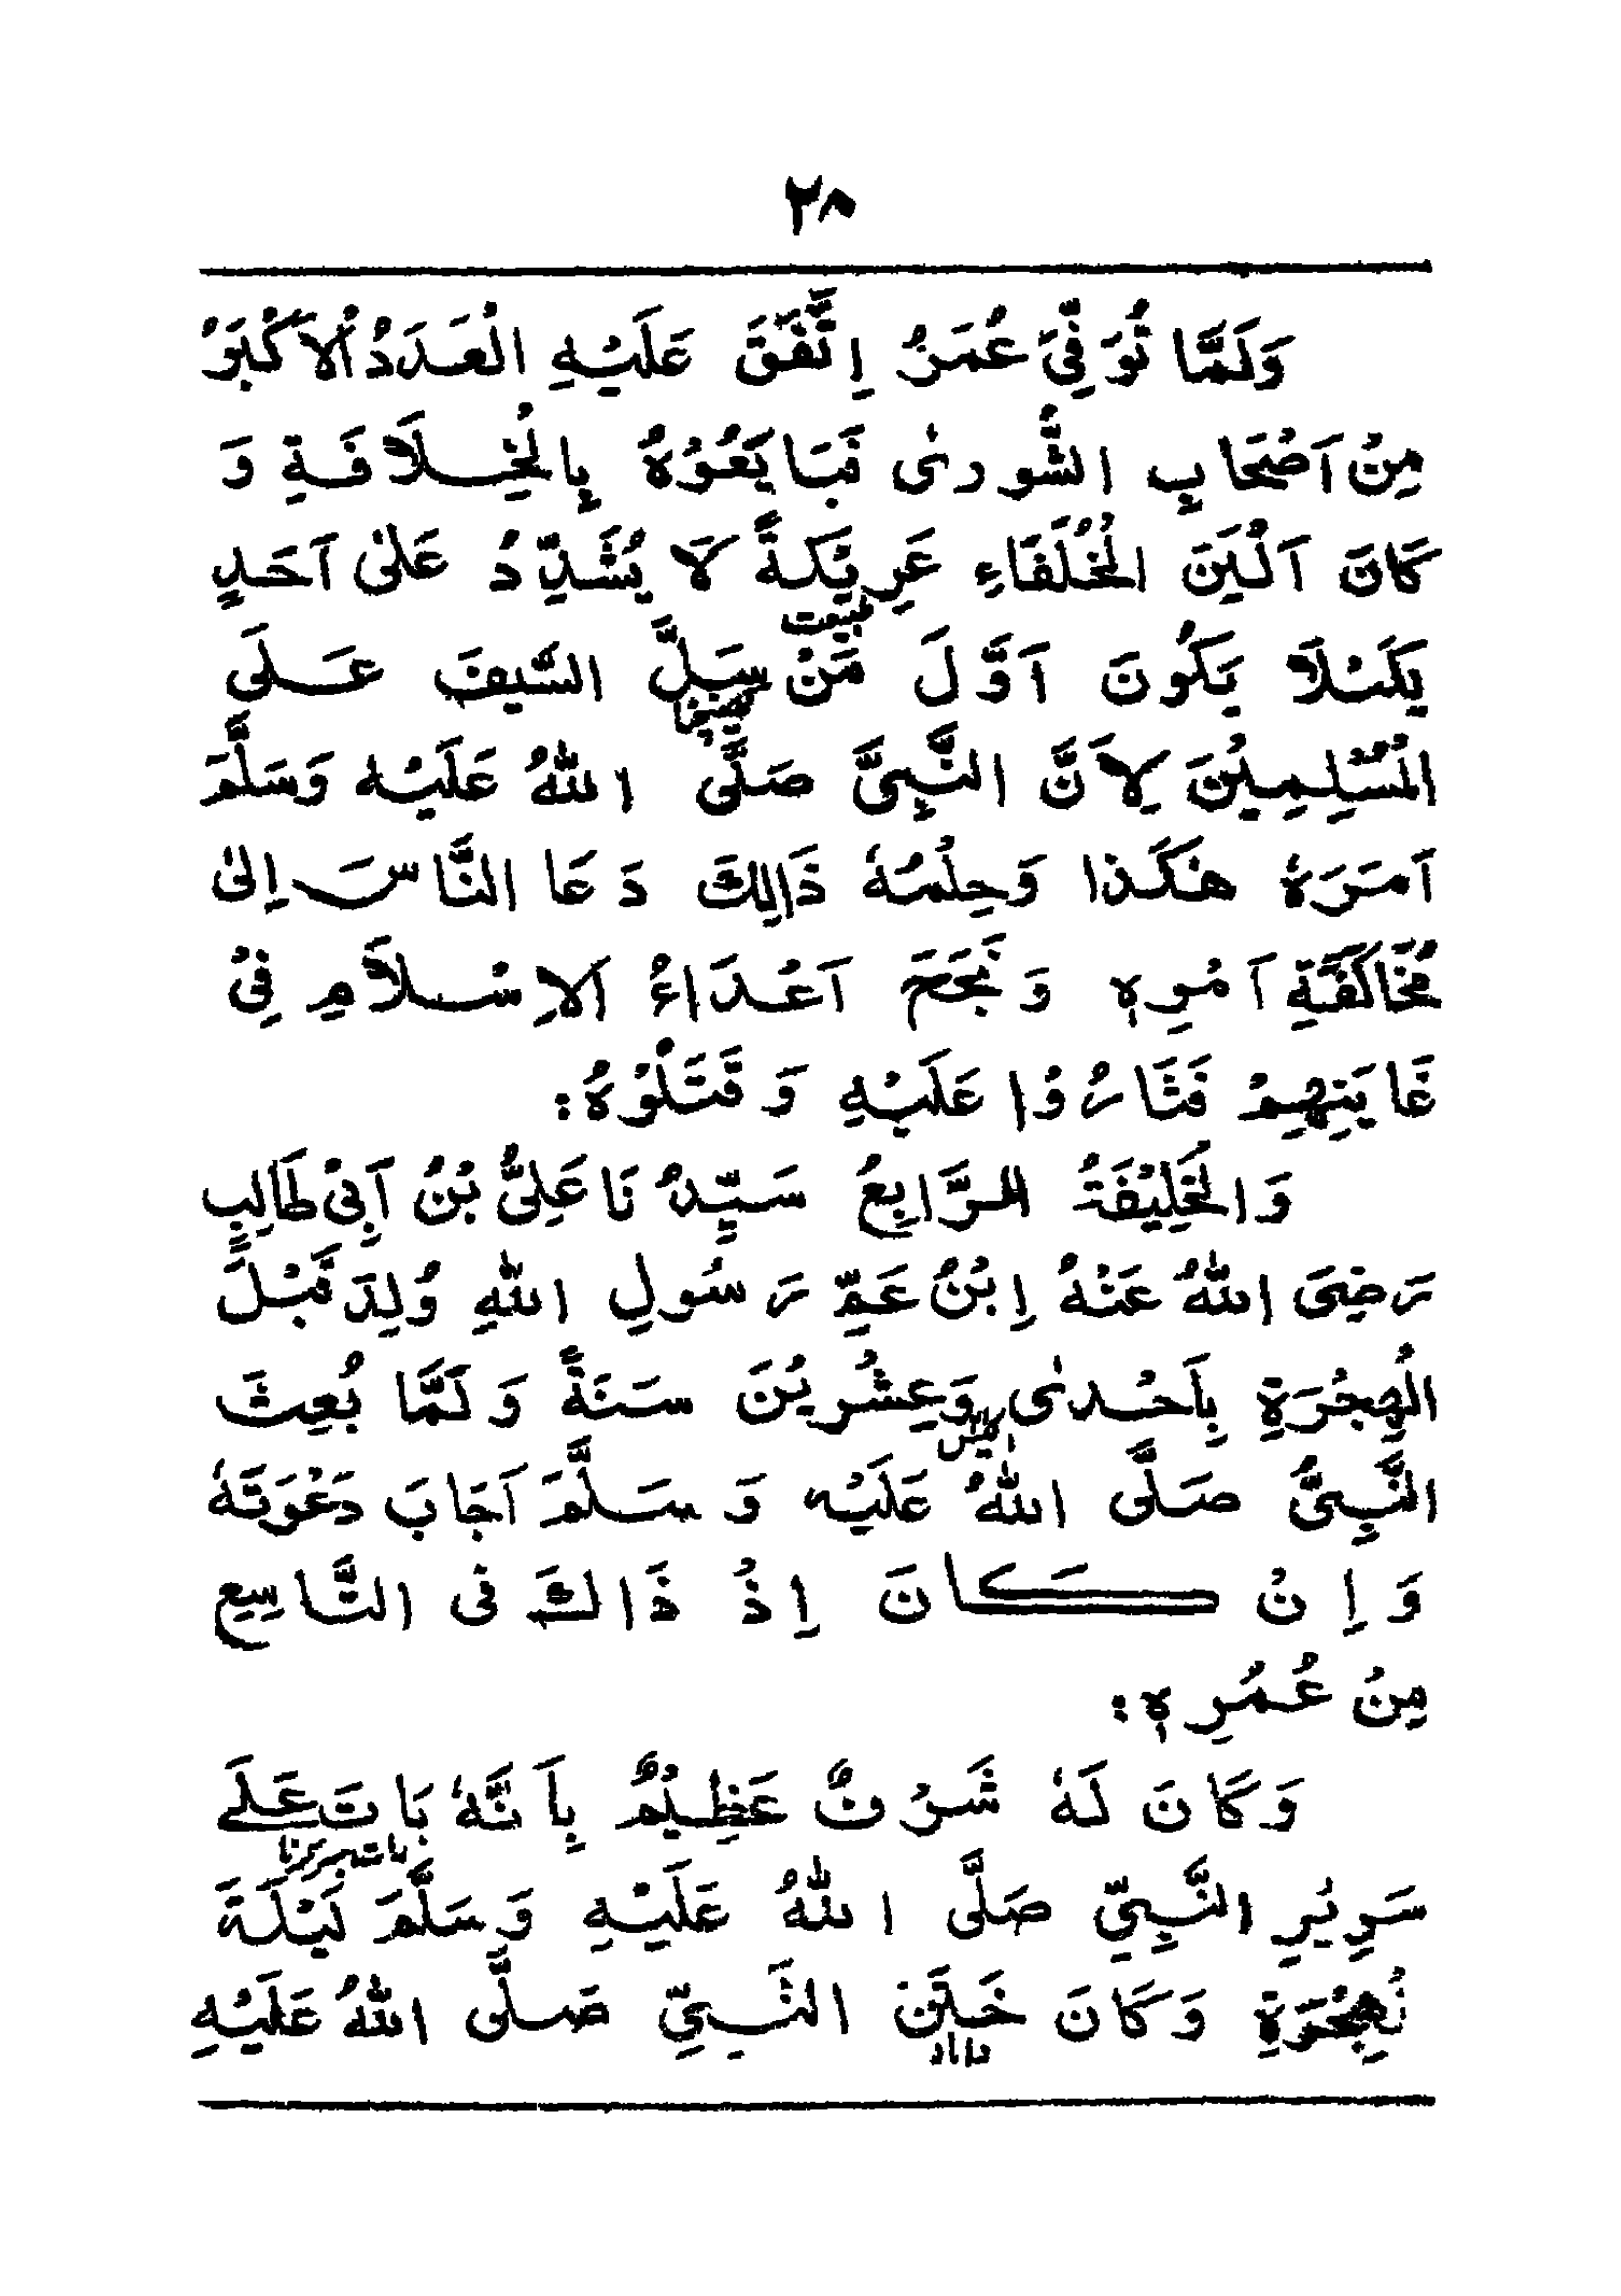 ٢٨
وَلَمَّا تُوَفِّىَ عُمَرُ اِتَّفَقَ عَلَيْهِ الْعَدَدُ الْاَكْبَرُ
مِنْ اَصْحَابِ الشُّورىٰ فَبَايَعُوْهُ بِالْخِلَافَةِ وَ
كَانَ اَلْيَنَ الْخُلَفَاءِ عَرِيْكَةً لَا يُشَدِّدُ عَلىٰ اَحَدٍ
طبیعت
لِكَيْلَا يَكُونَ اَوَّلَ مَنْ سَلَّ السَّيفَ عَلَى
الْمُسْلِمِيْنَ لِاَنَّ النَّبِىَّ صَلَّى اللهُ عَلَيْهِ وَسَلَّمَ
اَمَرَهٗ هٰكَذا وَحِلْمُهٗ ذَالِكَ دَعَا النَّاسَ اِلىٰ
مُخَالَفَةِ اَمْرِهٖ وَنَجَحَ اَعْدَاءُ الاِسْلَامِ فِىْ
غَايَتِهِمْ فَثَارُوْا عَلَيْهِ وَقَتَلُوْهُ:
وَالْخَلِيْفَةُ الرَّابِعُ سَيِّدُنَا عَلِىُّ بْنُ اَبِىْ طَالِبٍ
رَضِىَ اللهُ عَنْهُ اِبْنُ عَمِّ رَسُولِ اللهِ وُلِدَ قَبْلَ
الْهِجْرَةِ بِاَحْدىٰ وَعِشْرِيْنَ سَنَةً وَلَمَّا بُعِثَ
اکیس
النَّبِىُّ صَلَّى اللهُ عَلَيْهِ وَسَلَّمَ اَجَابَ دَعْوَتَهٗ
وَاِنْ كَانَ اِذْ ذَالكَ فى التَّاسِعِ
مِنْ عُمُرِهٖ:
وَكَانَ لَهٗ شَرْفٌ عَظِيْمٌ بِاَنَّهٗ بَاتَ عَلَے
سَرِيْرِ النَّبِىِّ صَلَّى اللهُ عَلَيْهِ وَسَلَّمَ لَيْلَةَ
الْهِجْرَةِ وَكَانَ خَتَنَ النَّبِىِّ صَلَّى اللهُ عَلَيْهِ
داماد